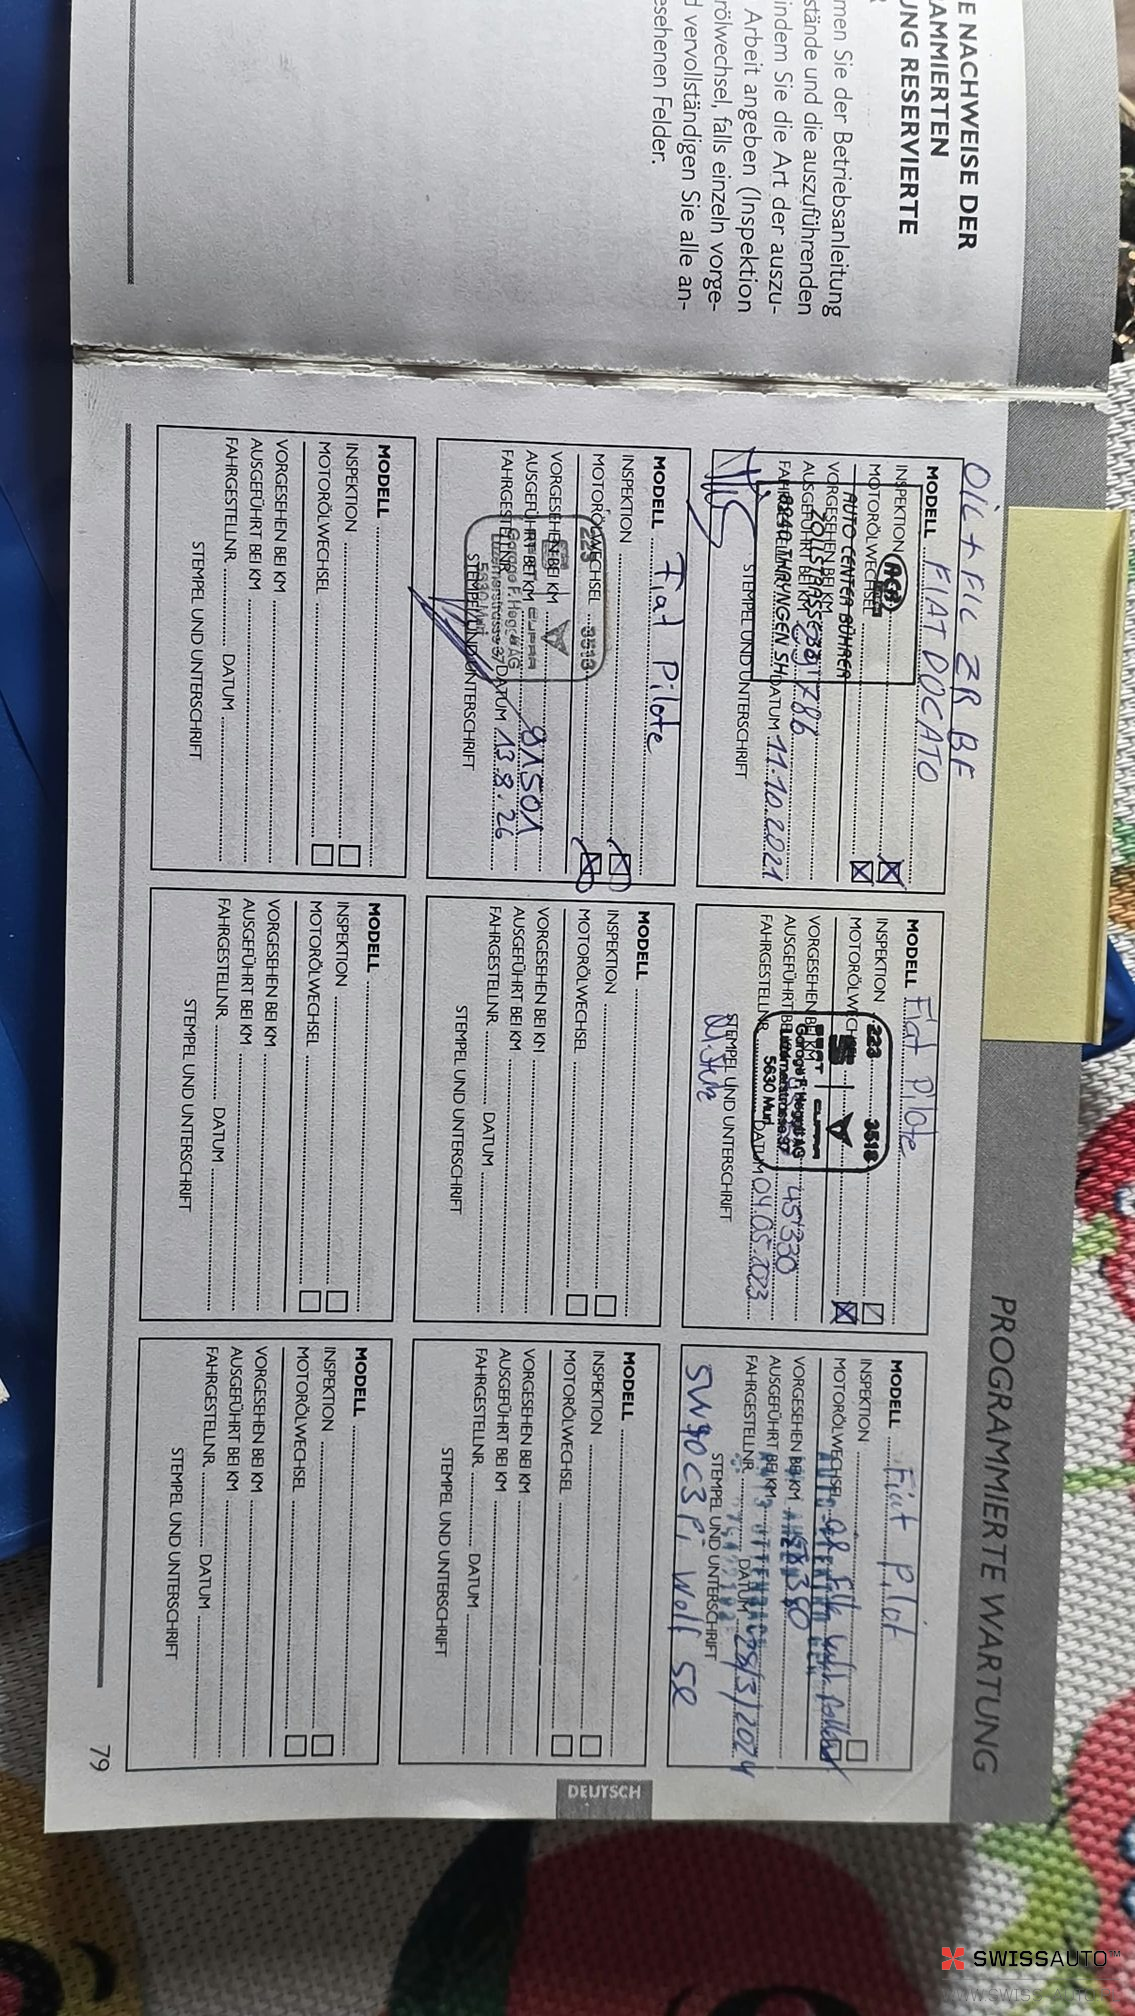 E NACHWEISE DER
AMMIERTEN
UNG RESERVIERTE
men Sie der Betriebsanleitung
stände und die auszuführenden
indem Sie die Art der auszu-
Arbeit angeben (Inspektion
rölwechsel, falls einzeln vorge-
d vervollständigen Sie alle an-
esehenen Felder.
PROGRAMMIERTE WARTUNG
OIL + FIL ZR BF
MODELL FIAT DOCATO
INSPEKTION
MOTORÖLWECHSEL
VORGESEHEN BEI KM
AUSGEFÜHRT BEI KM
FAHRGESTELLNR. DATUM 11.10.2021
STEMPEL UND UNTERSCHRIFT
AUTO CENTER BÜHRER
8240 THAYNGEN SH
MODELL Fiat Pilote
INSPEKTION
MOTORÖLWECHSEL
VORGESEHEN BEI KM
AUSGEFÜHRT BEI KM 45'330
FAHRGESTELLNR. DATUM 04.05.2023
STEMPEL UND UNTERSCHRIFT
223 3513
SEAT CUPRA
Garage F. Hegglin AG
Luzernerstrasse 37
5630 Muri
MODELL Fiat Pilot
INSPEKTION
MOTORÖLWECHSEL
VORGESEHEN BEI KM
AUSGEFÜHRT BEI KM
FAHRGESTELLNR. DATUM
STEMPEL UND UNTERSCHRIFT
MODELL Fiat Pilote
INSPEKTION
MOTORÖLWECHSEL
VORGESEHEN BEI KM
AUSGEFÜHRT BEI KM 81501
FAHRGESTELLNR. DATUM 13.8.26
STEMPEL UND UNTERSCHRIFT
223 3513
CUPRA
Luzernerstrasse 37
5630 Muri
MODELL
INSPEKTION
MOTORÖLWECHSEL
VORGESEHEN BEI KM
AUSGEFÜHRT BEI KM
FAHRGESTELLNR. DATUM
STEMPEL UND UNTERSCHRIFT
MODELL
INSPEKTION
MOTORÖLWECHSEL
VORGESEHEN BEI KM
AUSGEFÜHRT BEI KM
FAHRGESTELLNR. DATUM
STEMPEL UND UNTERSCHRIFT
MODELL
INSPEKTION
MOTORÖLWECHSEL
VORGESEHEN BEI KM
AUSGEFÜHRT BEI KM
FAHRGESTELLNR. DATUM
STEMPEL UND UNTERSCHRIFT
MODELL
INSPEKTION
MOTORÖLWECHSEL
VORGESEHEN BEI KM
AUSGEFÜHRT BEI KM
FAHRGESTELLNR. DATUM
STEMPEL UND UNTERSCHRIFT
MODELL
INSPEKTION
MOTORÖLWECHSEL
VORGESEHEN BEI KM
AUSGEFÜHRT BEI KM
FAHRGESTELLNR. DATUM
STEMPEL UND UNTERSCHRIFT
DEUTSCH
79
SWISSAUTO™